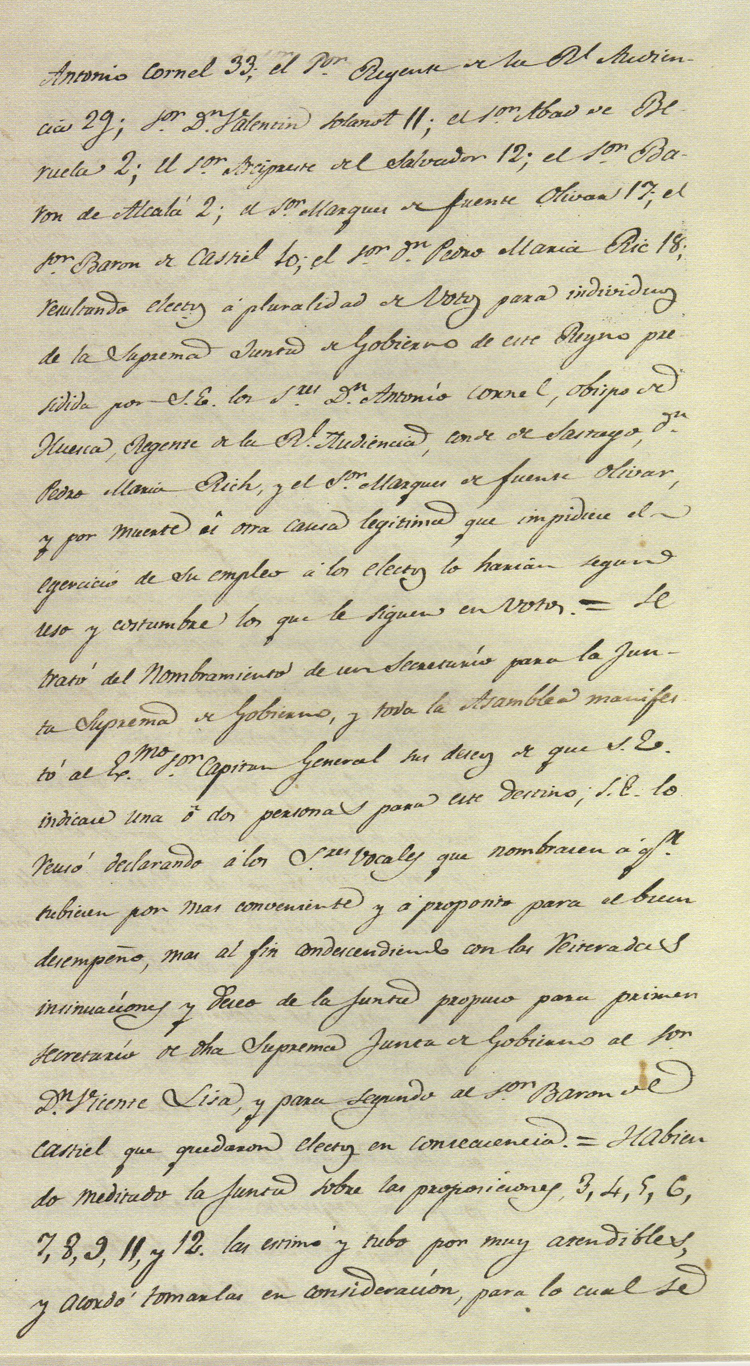 Antonio Cornel 33; el Sor. Regente de la Rl. Audien-
cia 29; Sor. Dn. Valentin Solanot 11; el Sor. Abad de Be-
ruela 2; el Sor. Arcipreste del Salvador 12; el Sor. Ba-
ron de Alcalá 2; el Sor. Marques de fuente Olivar 17; el
Sor. Baron de Castiel 10; el Sor. Dn. Pedro Maria Ric 18;
resultando electos á pluralidad de Votos para individuos
de la Suprema Junta de Gobierno de este Reyno pre-
sidida por S.E. los Sres. Dn. Antonío Cornel, Obispo de
Huesca, Regente de la Rl. Audiencia, conde de Sastago, Dn.
Pedro Maria Rich, y el Sor. Marques de fuente Olivar,
y por muerte ú otra causa legitima que impidiese el
egercicio de su empleo á los electos lo harian segun
uso y costumbre los que le siguen en Votos. = Se
trató del Nombramiento de un Secretarío para la Jun-
ta Suprema de Gobierno, y toda la Asamblea manifes
tó al Exmo. Sor. Capitan General sus deseos de que S.E.
indicase una ó dos personas para este destino; S.E. lo
reusó declarando á los Sres. Vocales que nombrasen á qn.
tubiesen por mas conveniente y á proposito para el buen
desempeño, mas al fin condescendiendo con las reiteradas
insinuaciones y deseo de la Junta propuso para primer
secretarío de dha Suprema Junta de Gobierno al Sor
Dn. Vicente Lisa, y para segundo al Sor. Baron de
Castiel que quedaron electos en consecuencia. = Habien
do meditado la Junta sobre las proposiciones, 3, 4, 5, 6,
7, 8, 9, 11, y 12. las estimó y tubo por muy atendibles,
y acordó tomarlas en consideración, para lo cual se